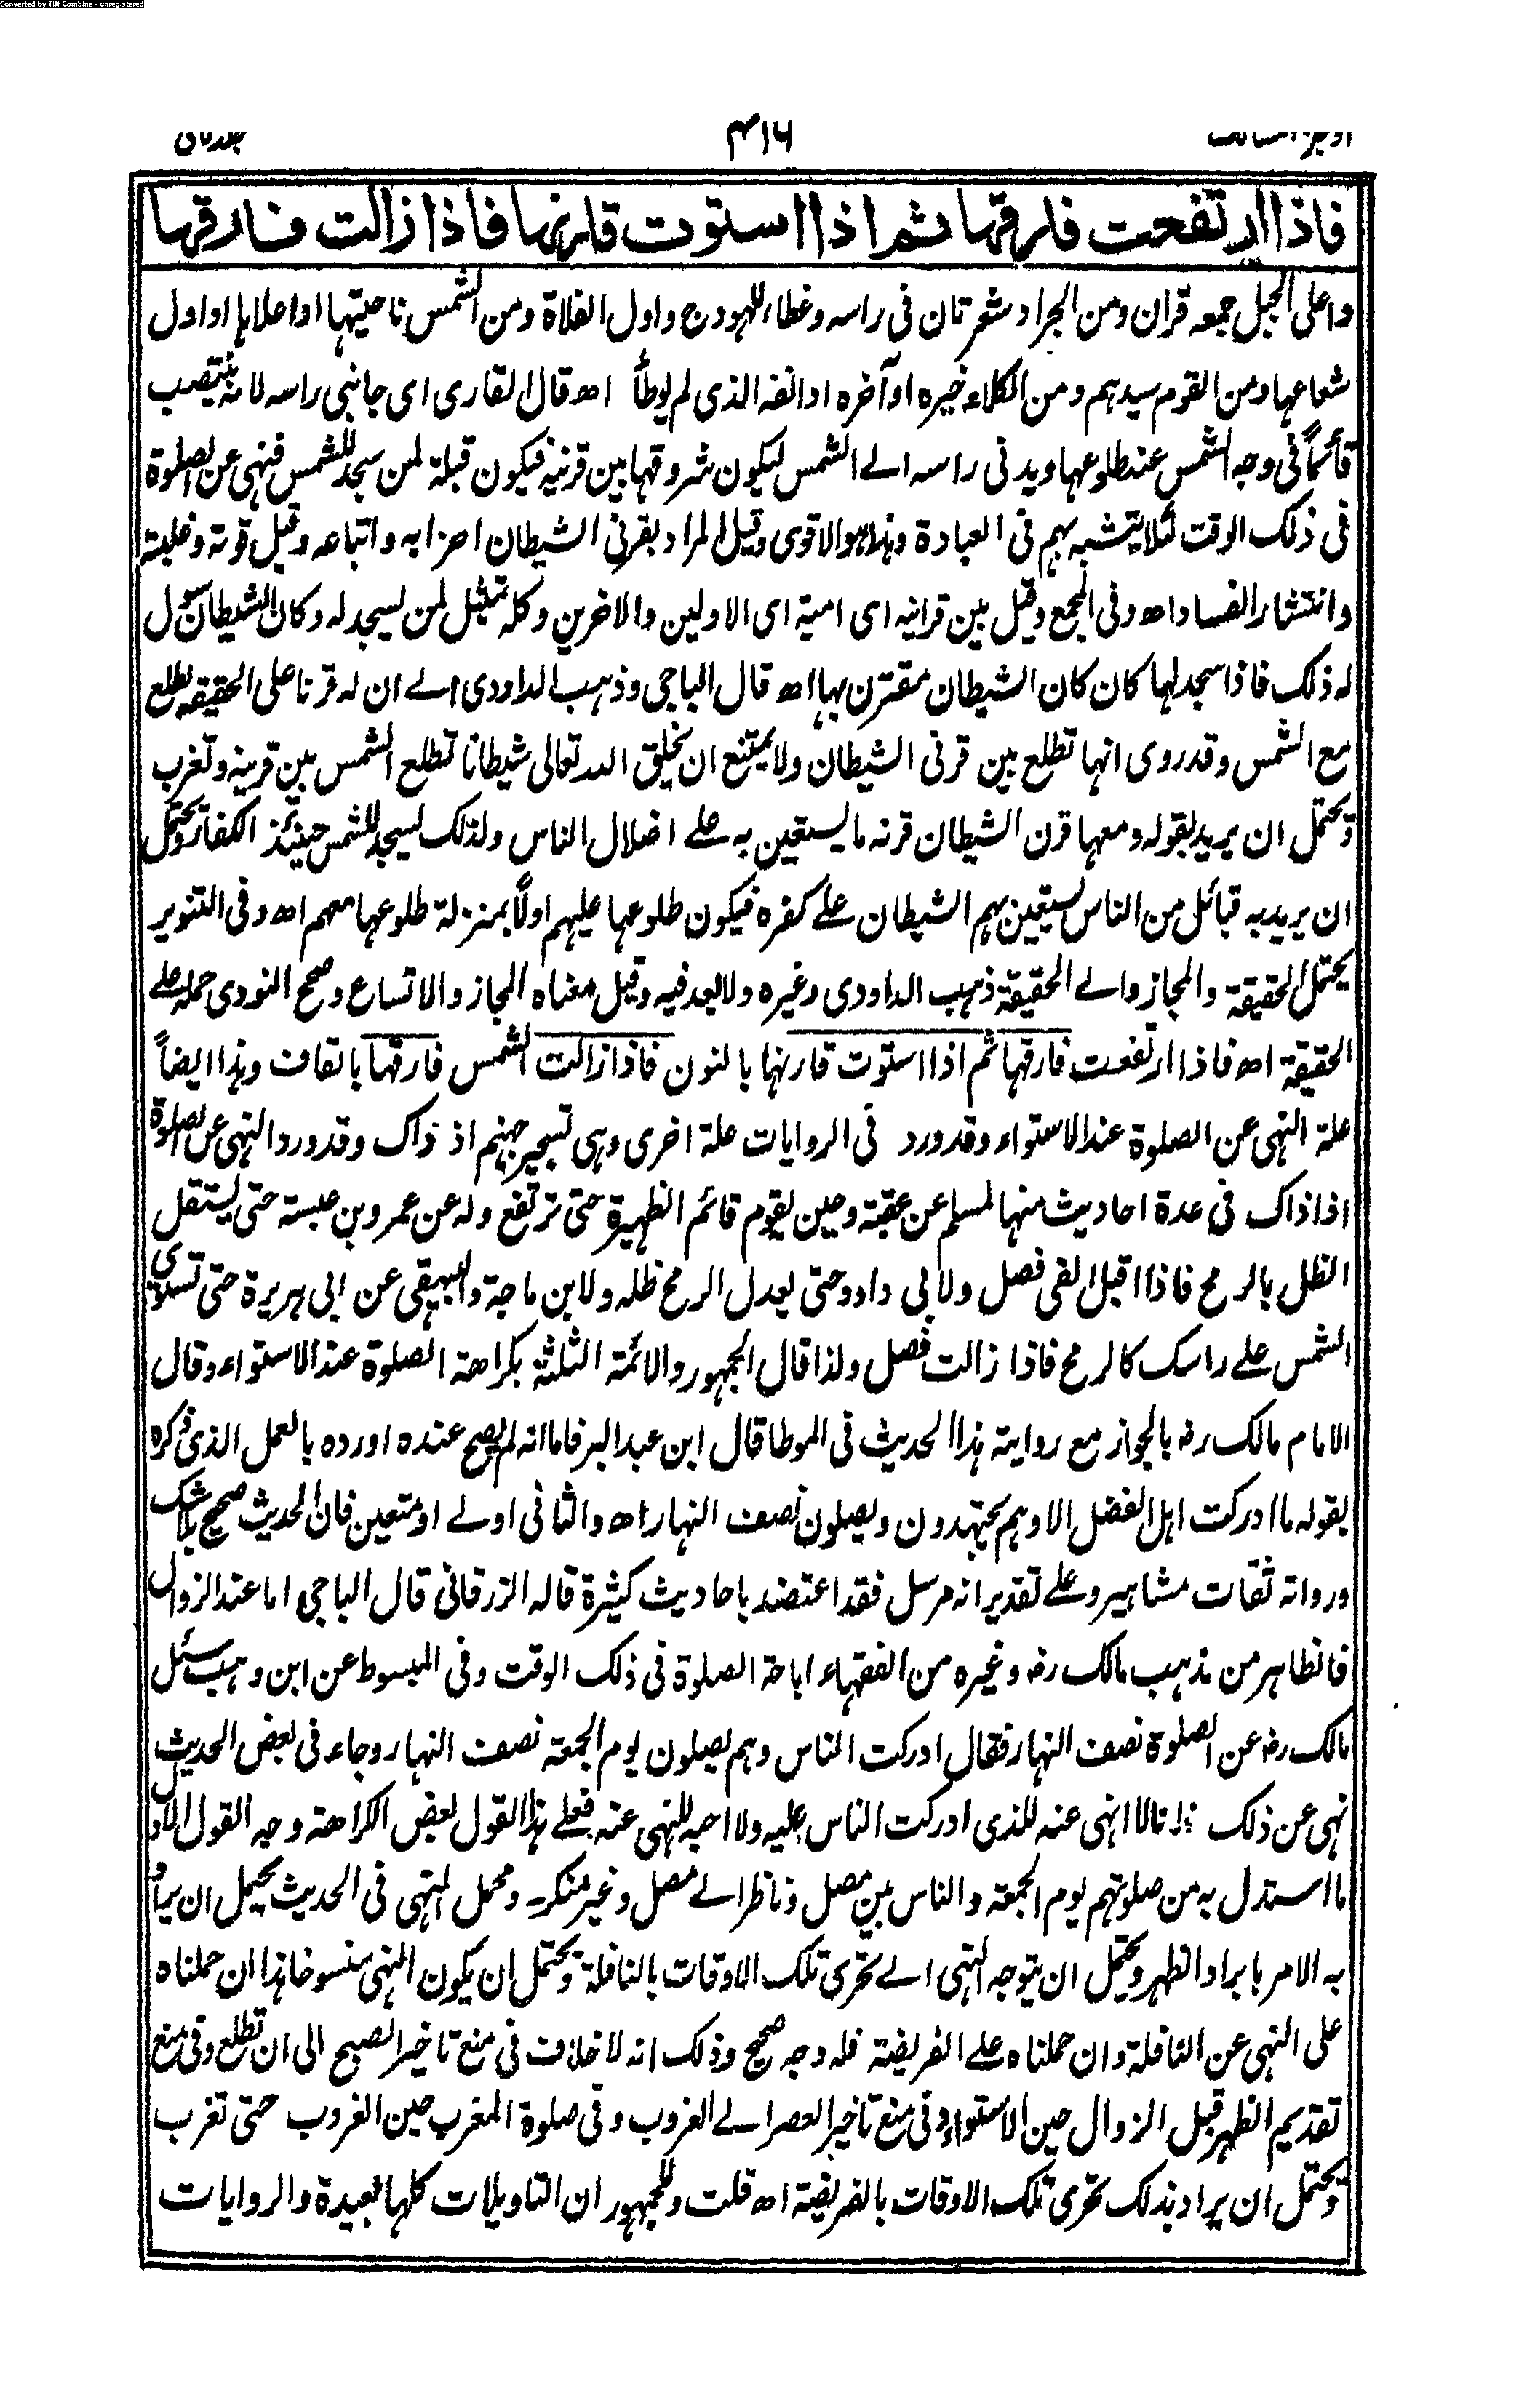 Converted by Tiff Combine - unregistered
اوجز المسالک ۴۱۶ جلد ثانی
فاذا ارتفعت فارقها ثم اذا استوت قارنها فاذا زالت فارقها
واعلی الجبل جمعه قران ومن الجراد شعرتان فی راسه وغطاء للهودج واول الفلاة ومن الشمس ناحیتها او اعلاها او اول
شعاعها ومن القوم سیدهم ومن الکلاء خیره او آخره او انفه الذی لم یوطأ اھ قال القاری ای جانبی راسه لانه ینتصب
قائمًا فی وجه الشمس عند طلوعها ویدنی راسه الے الشمس لیکون شروقها بین قرنیه فیکون قبلة لمن سجد للشمس فنهی عن الصلوة
فی ذلک الوقت لئلا یتشبه بهم فی العبادة وهذا هو الاقوی وقیل المراد بقرنی الشیطان احزابه واتباعه وقیل قوته وغلبته
وانتشار الفساد اھ وفی المجمع وقیل بین قرانیه ای امیة ای الاولین والاخرین وکله تمثیل لمن یسجد له وکان الشیطان سول
له ذلک فاذا سجد لها کان کان الشیطان مقترن بها اھ قال الباجی وذهب الداودی الے ان له قرنا علی الحقیقة یطلع
مع الشمس وقد روی انها تطلع بین قرنی الشیطان ولا یمتنع ان یخلق الله تعالی شیطانا تطلع الشمس بین قرنیه وتغرب
ویحتمل ان یرید بقوله ومعها قرن الشیطان قرنه ما یستعین به علے اضلال الناس ولذلک یسجد للشمس حینئذ الکفار ویحتمل
ان یرید به قبائل من الناس یستعین بهم الشیطان علے کفره فیکون طلوعها علیهم اولًا بمنزلة طلوعها معهم اھ وفی التنویر
یحتمل الحقیقة والمجاز والے الحقیقة ذهب الداودی وغیره ولا بعد فیه وقیل معناه المجاز والاتساع وصحح النووی حمله علے
الحقیقة اھ فاذا ارتفعت فارقها ثم اذا استوت قارنها بالنون فاذا زالت الشمس فارقها بالقاف وهذا ایضاً
علة النهی عن الصلوة عند الاستواء وقد ورد فی الروایات علة اخری وهی تسجیر جهنم اذ ذاک وقد ورد النهی عن الصلوة
اذا ذاک فی عدة احادیث منها لمسلم عن عقبة وحین یقوم قائم الظهیرة حتی ترتفع وله عن عمرو بن عبسة حتی یستقل
الظل بالرمح فاذا اقبل الفی فصل ولابی داود حتی یعدل الرمح ظله ولابن ماجة والبیهقی عن ابی هریرة حتی تستوی
الشمس علے راسک کالرمح فاذا زالت فصل ولذا قال الجمهور والائمة الثلثة بکراهة الصلوة عند الاستواء وقال
الامام مالک رض بالجواز مع روایته هذا الحدیث فی الموطا قال ابن عبد البر فاما انه لم یصح عنده او رده بالعمل الذی ذکره
بقوله ما ادرکت اهل الفضل الا وهم یجتهدون ویصلون نصف النهار اھ والثانی اولے او متعین فان الحدیث صحیح بلا شک
ورواته ثقات مشاهیر وعلے تقدیر انه مرسل فقد اعتضد باحادیث کثیرة قاله الزرقانی قال الباجی اما عند الزوال
فالظاهر من مذهب مالک رض وغیره من الفقهاء اباحة الصلوة فی ذلک الوقت وفی المبسوط عن ابن وهب سئل
مالک رض عن الصلوة نصف النهار فقال ادرکت الناس وهم یصلون یوم الجمعة نصف النهار وجاء فی بعض الحدیث
نهی عن ذلک فانا لا انهی عنه للذی ادرکت الناس علیه ولا احبه للنهی عنه فعلے هذا القول بعض الکراهة وجه القول الاول
ما استدل به من صلوتهم یوم الجمعة والناس بین مصل وناظر الے مصل وغیر منکر ومحمل النهی فی الحدیث یحتمل ان یراد
به الامر بابراد الظهر ویحتمل ان یتوجه النهی الے تحری تلک الاوقات بالنافلة ویحتمل ان یکون النهی منسوخا هذا ان حملناه
علی النهی عن النافلة وان حملناه علے الفریضة فله وجه صحیح وذلک انه لا خلاف فی منع تاخیر الصبح الی ان تطلع وفی منع
تقدیم الظهر قبل الزوال حین الاستواء وفی منع تاخیر العصر الے الغروب وفی صلوة المغرب حین الغروب حتی تغرب
ویحتمل ان یراد بذلک تحری تلک الاوقات بالفریضة اھ قلت وللجمهور ان التاویلات کلها بعیدة والروایات